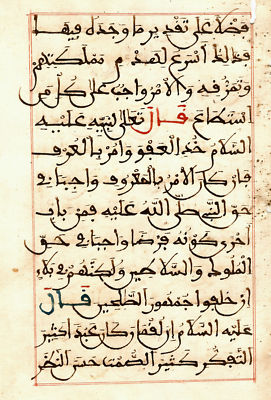 على تقدير ما وجد له فيها
أسرع لهدم مملكتهم
والأمر واجب على كل من
استطاع قال تعالى لنبيه عليه
السلام خذ العفو وامر بالعرف
فإن كان الأمر بالمعروف واجبا في
حق النبي صلى الله عليه فمن باب
أحرى كونه فرضا واجبا في حق
الملوك والسلاطين ولكنهم في
جمهور قال
عليه السلام إن لقمان كان عبدا كثير
التفكر كثير الصمت حسن النظر